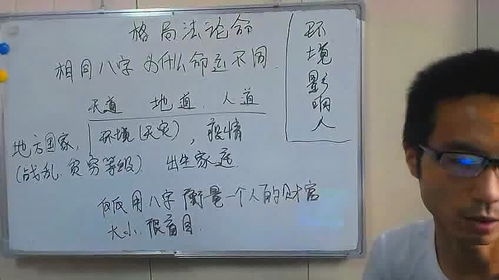 格局法论命
相同八字 为什么命运不同
天道 地道 人道
地方国家, 环境(天灾), 疫情
(战乱 贫穷等级) 出生家庭
用八字 衡量一个人的财富
大小 很盲目.
环境影响人